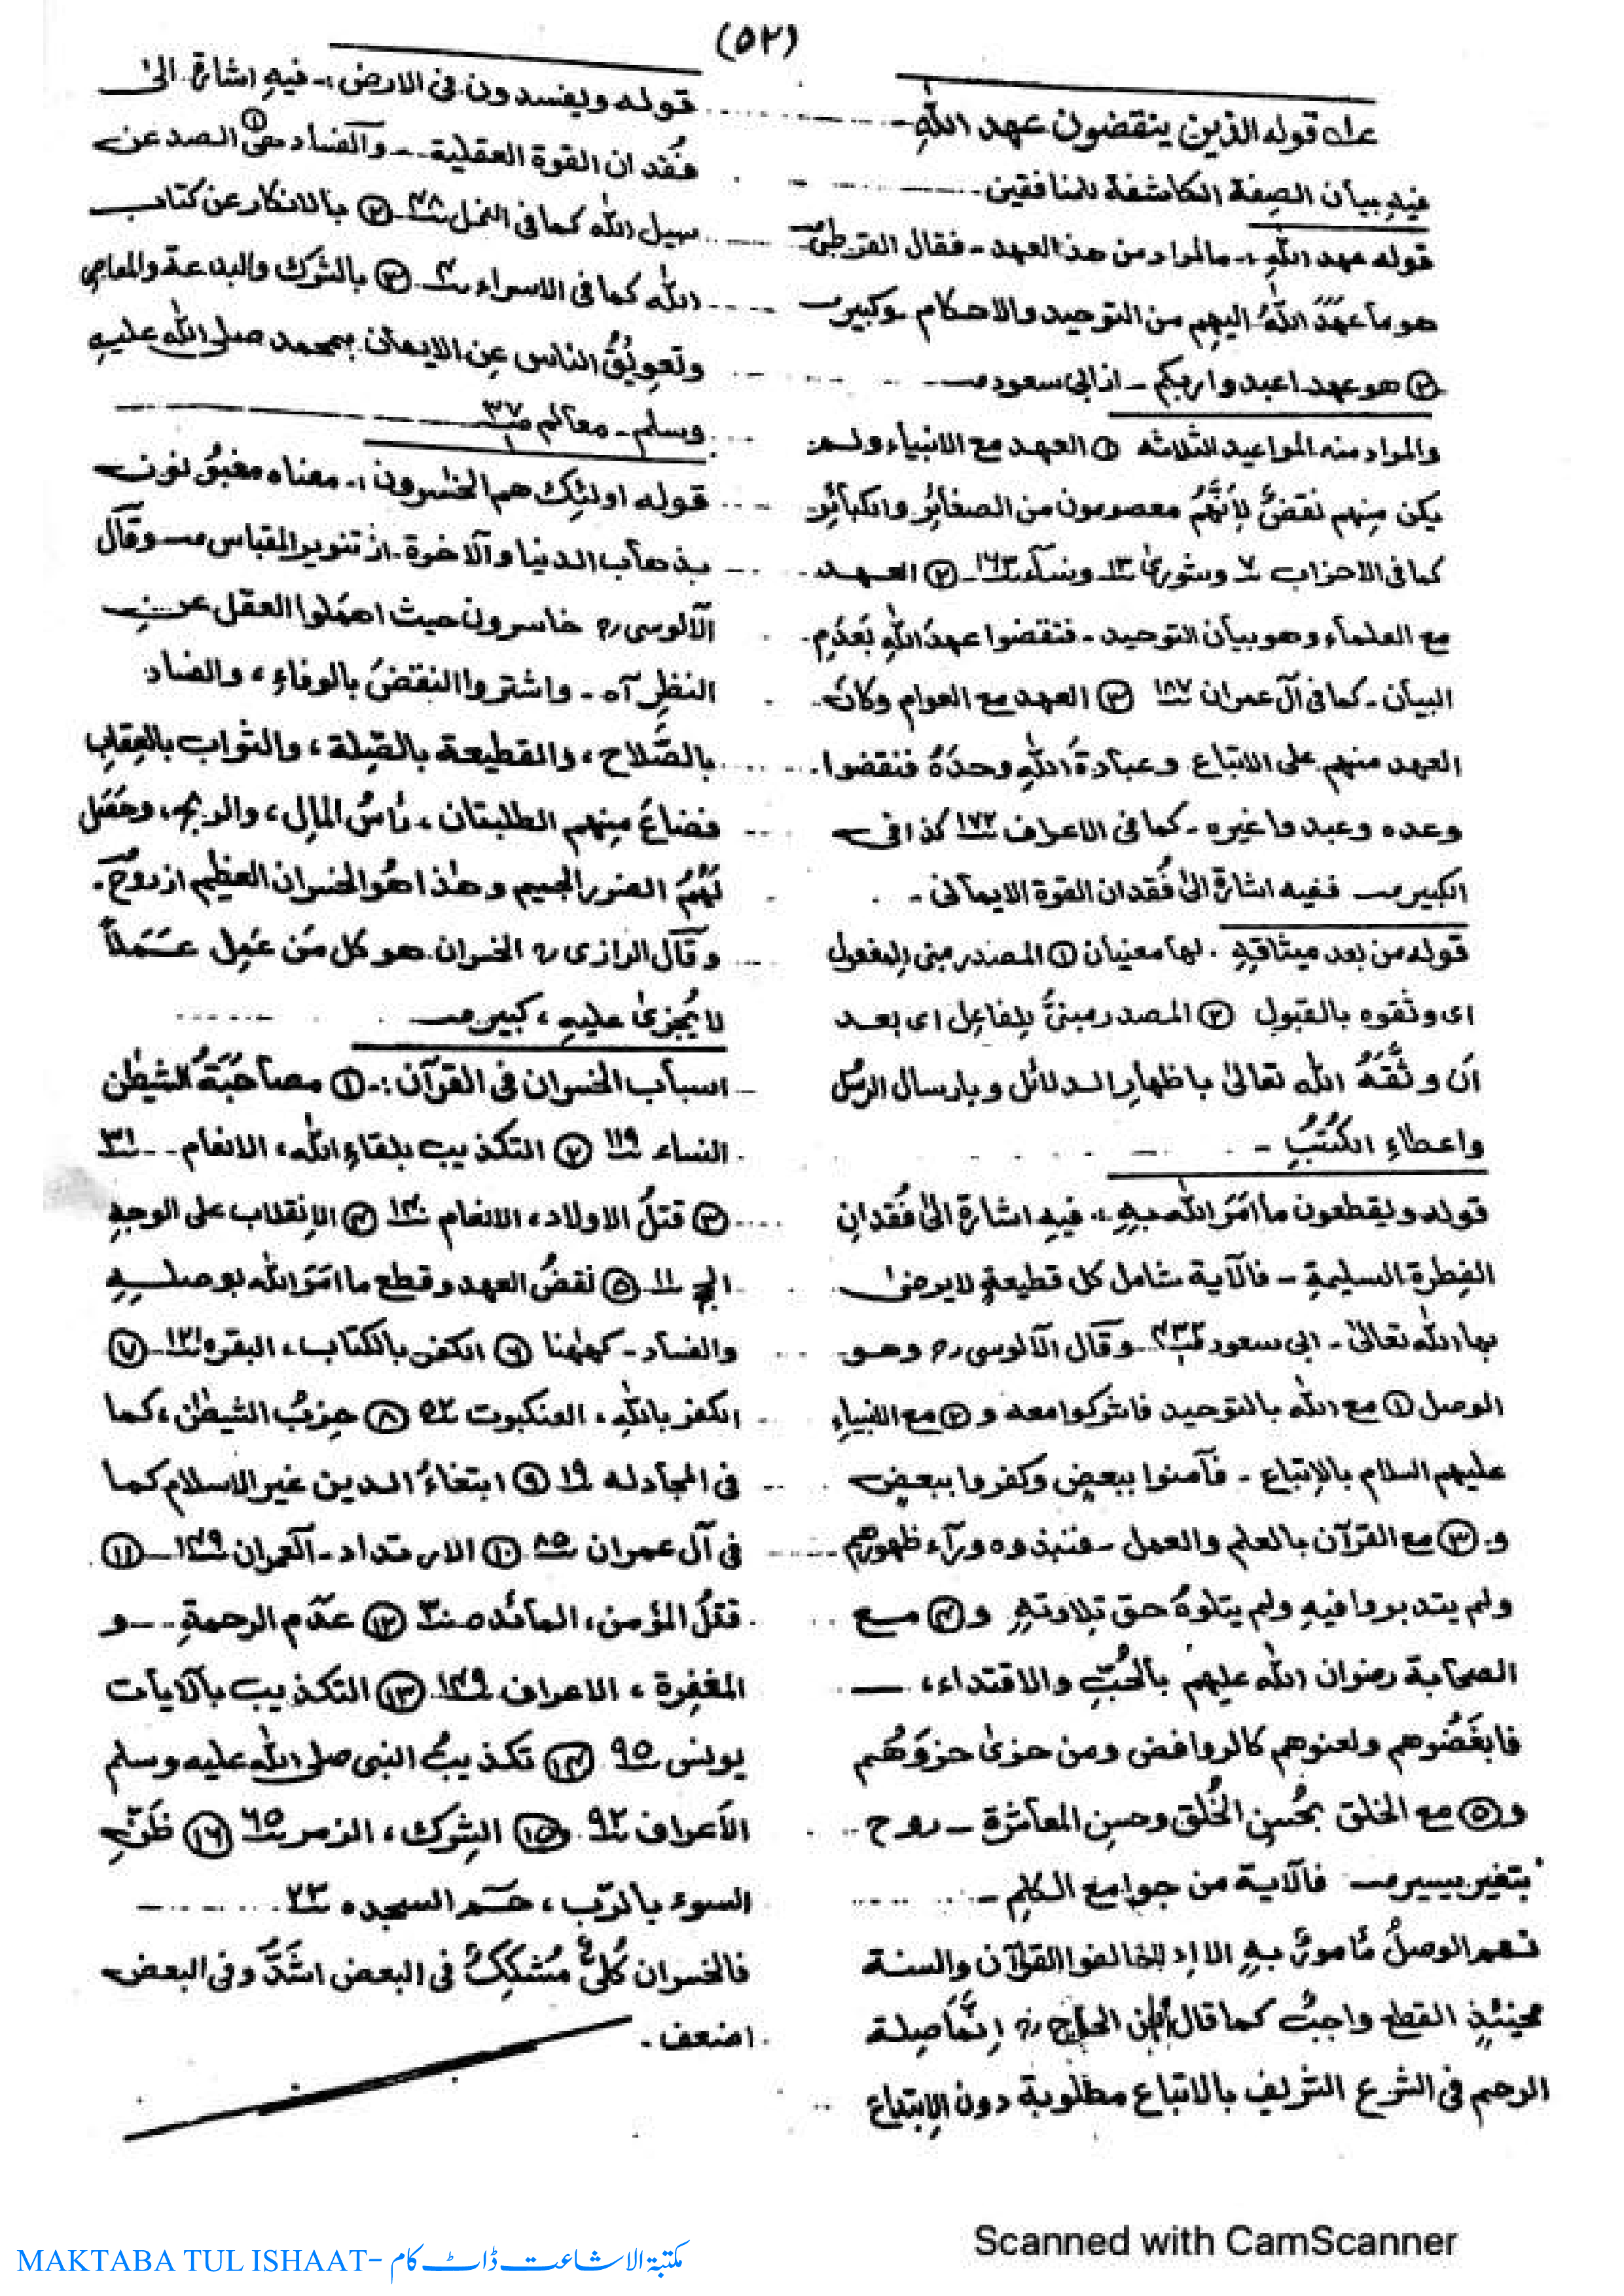 (۵۲)
عـ۱ قوله الذين ينقضون عهد اللهِ
فيهِ بيأن الصِفة الكاشفة للمنافقين۔
قوله عهد اللهِ :۔ مالمراد من هذ العهد ۔ فقال القرطبیؒ
هو مأ عَهَدَ اللهُ اليهِم من التوحيد والاحكام ۔ وكبير صـ
② هو عهد اعبدوا ربكم ۔ از ابی سعود صـ
والمراد منه المواعيد الثلاثه ① العهد مع الانبياء ولم
يكن مِنهم نقضٌ لِأنَّهُم معصومون من الصغائِر والكبأئِر
كما فی الاحزاب ۷ وشوریٰ ۱۳ ۔ ونسآء ۱۶۳ ۔ ② العهد
مع العلمأء وهو بيأن التوحيد ۔ فنقضوا عهدَ اللهِ بَعدَمِ
البيأن ۔ كما فی آل عمران ۱۸۷ ③ العهد مع العوام وكانَ
العهد منهم علی الاتباع وعبأدةُ اللهِ وحدَهُ فنقضوا
وعده وعبدوا غيره ۔ كما فی الاعراف ۱۷۲ كذا فی
الكبير صـ ففيه اشارة الیٰ فُقدان القوة الايمأنی ۔
قوله من بعد ميثاقهِ . لها معنيأن ① المصدر مبنی لِلمفعول
ای وثقوه بالقبولِ ② المصدر مبنیٌّ لِلفاعِل ای بعد
اَن وثَّقَهُ اللهُ تعالیٰ باظهارِ الدلائل وبارسال الرُسُل
واعطاءِ الكُتُبِ ۔
قوله ويقطعون ما اَمَرَ الله بِهِ :۔ فيهِ اشارة الیٰ فُقدانِ
الفِطرة السليمةِ ۔ فالآية شامل كل قطيعةٍ لايرضیٰ
بها الله تعالیٰ ۔ ابی سعود وقال الآلوسی رح وهو
الوصل ① مع الله بالتوحيد فاشركوا معه و② مع الانبياءِ
عليهم السلام بالاِتباع ۔ فآمنوا ببعضٍ وكفروا ببعضٍ
و③ مع القرآن بالعلم والعمل ۔ فنبذوه ورآء ظهورهم
ولم يتدبروا فيهِ ولم يتلوهُ حق تِلاوتهِ و④ مع
الصحأبة رضوان الله عليهِم بألحُبِّ والاقتداء، ــ
فابغَضُوهم ولعنوهم كالروافض ومن
و⑤ مع الخلق بحُسنِ الخُلق وحسنِ المعأشرة ۔ روح
بتغير يسير صـ فالآية من جوامع الكلِم ۔
نعم الوصلُ مأمورٌ بهِ الا اِذ خالفوا القرآن والسنة
فحينئِذٍ القطع واجبٌ كما قال ابن الحاج رح اِنَّمأ صِلة
الرحم فی الشرع الشريفِ بالاتباع مطلوبة دون الاِبتداع
قوله ويفسدون فی الارض :۔ فيهِ اشارة الیٰ
فُقدان القوة العقلية ۔ وآلفسأد ① الصد عن
سبيل الله كما فی النحل ۸۸ ② بالانكار عن كتاب
الله كما فی الاسراء ۴ ③ بالشرك والبدعة والمعاصی
وتعويقُ الناس عِن الايمان بمحمد صلی الله عليهِ
وسلم ۔ معألم ۳۷
قوله اولئِك هم الخٰسرون :۔ معناه مغبُونون
بذهأب الدنيا وآلاخرة ۔ از تنوير المقباس صـ وقآل
الآلوسی رح خاسرون حيث اهمَلوا العقل عنِ
النظرِ آه ۔ واشتروا النقضَ بالوفاءِ، والفساد
بالصَّلاح، والقطيعة بالصِّلة، والثواب بالعِقاب
فضاعَ مِنهم الطلبتان، رأسُ المالِ، والربح، وحَصَل
لَهُم الضرر الجسيم وهٰذا هُو الخسران العظيم از روح ۔
وقآل الرازی رح الخسران هو كل مَن عَمِل عَمَلاً
لا يُجزیٰ عليهِ، كبير صـ
اسبأب الخسران فی القرآن :۔ ① مصأحَبَةُ الشيطٰن
النساء ۱۱۹ ② التكذيب بلقاءِ الله، الانعأم ۳۱
③ قتلُ الاولاد، الانعام ۱۴۰ ④ الاِنقلاب علی الوجهِ
الحج ۱۱ ⑤ نقضُ العهد وقطع ما امَرَ الله بوصلهِ
والفسأد ۔ كهٰهنا ⑥ الكفر بالكتاب، البقره ۱۲۱ ⑦
الكفر باللهِ، العنكبوت ۵۲ ⑧ حِزبُ الشيطٰن، كما
فی المجأدله ۱۹ ⑨ ابتغاءُ الدين غير الاسلام كما
فی آل عمران ۸۵ ⑩ الارتداد ۔ آلعمران ۱۴۹ ⑪
قتلُ المؤمن، المأئده ۳۰ ⑫ عدَم الرحمةِ ۔ و
المغفِرة، الاعراف ۱۴۹ ⑬ التكذيب بآلايأت
يونس ۹۵ ⑭ تكذيبُ النبی صلی الله عليه وسلم
الأعراف ۹۲ ⑮ الشِرك، الزمر ۶۵ ⑯ ظَنِّ
السوء بالرّب، حٰـم السجده ۲۳
فالخسران كُلیٌّ مُشكِكٌ فی البعض اشَدُّ وفی البعض
اضعف ۔
Scanned with CamScanner
MAKTABA TUL ISHAAT- مکتبۃ الاشاعت ڈاٹ کام